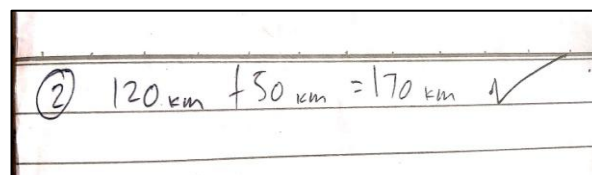 ② 120 km + 50 km = 170 km ✓